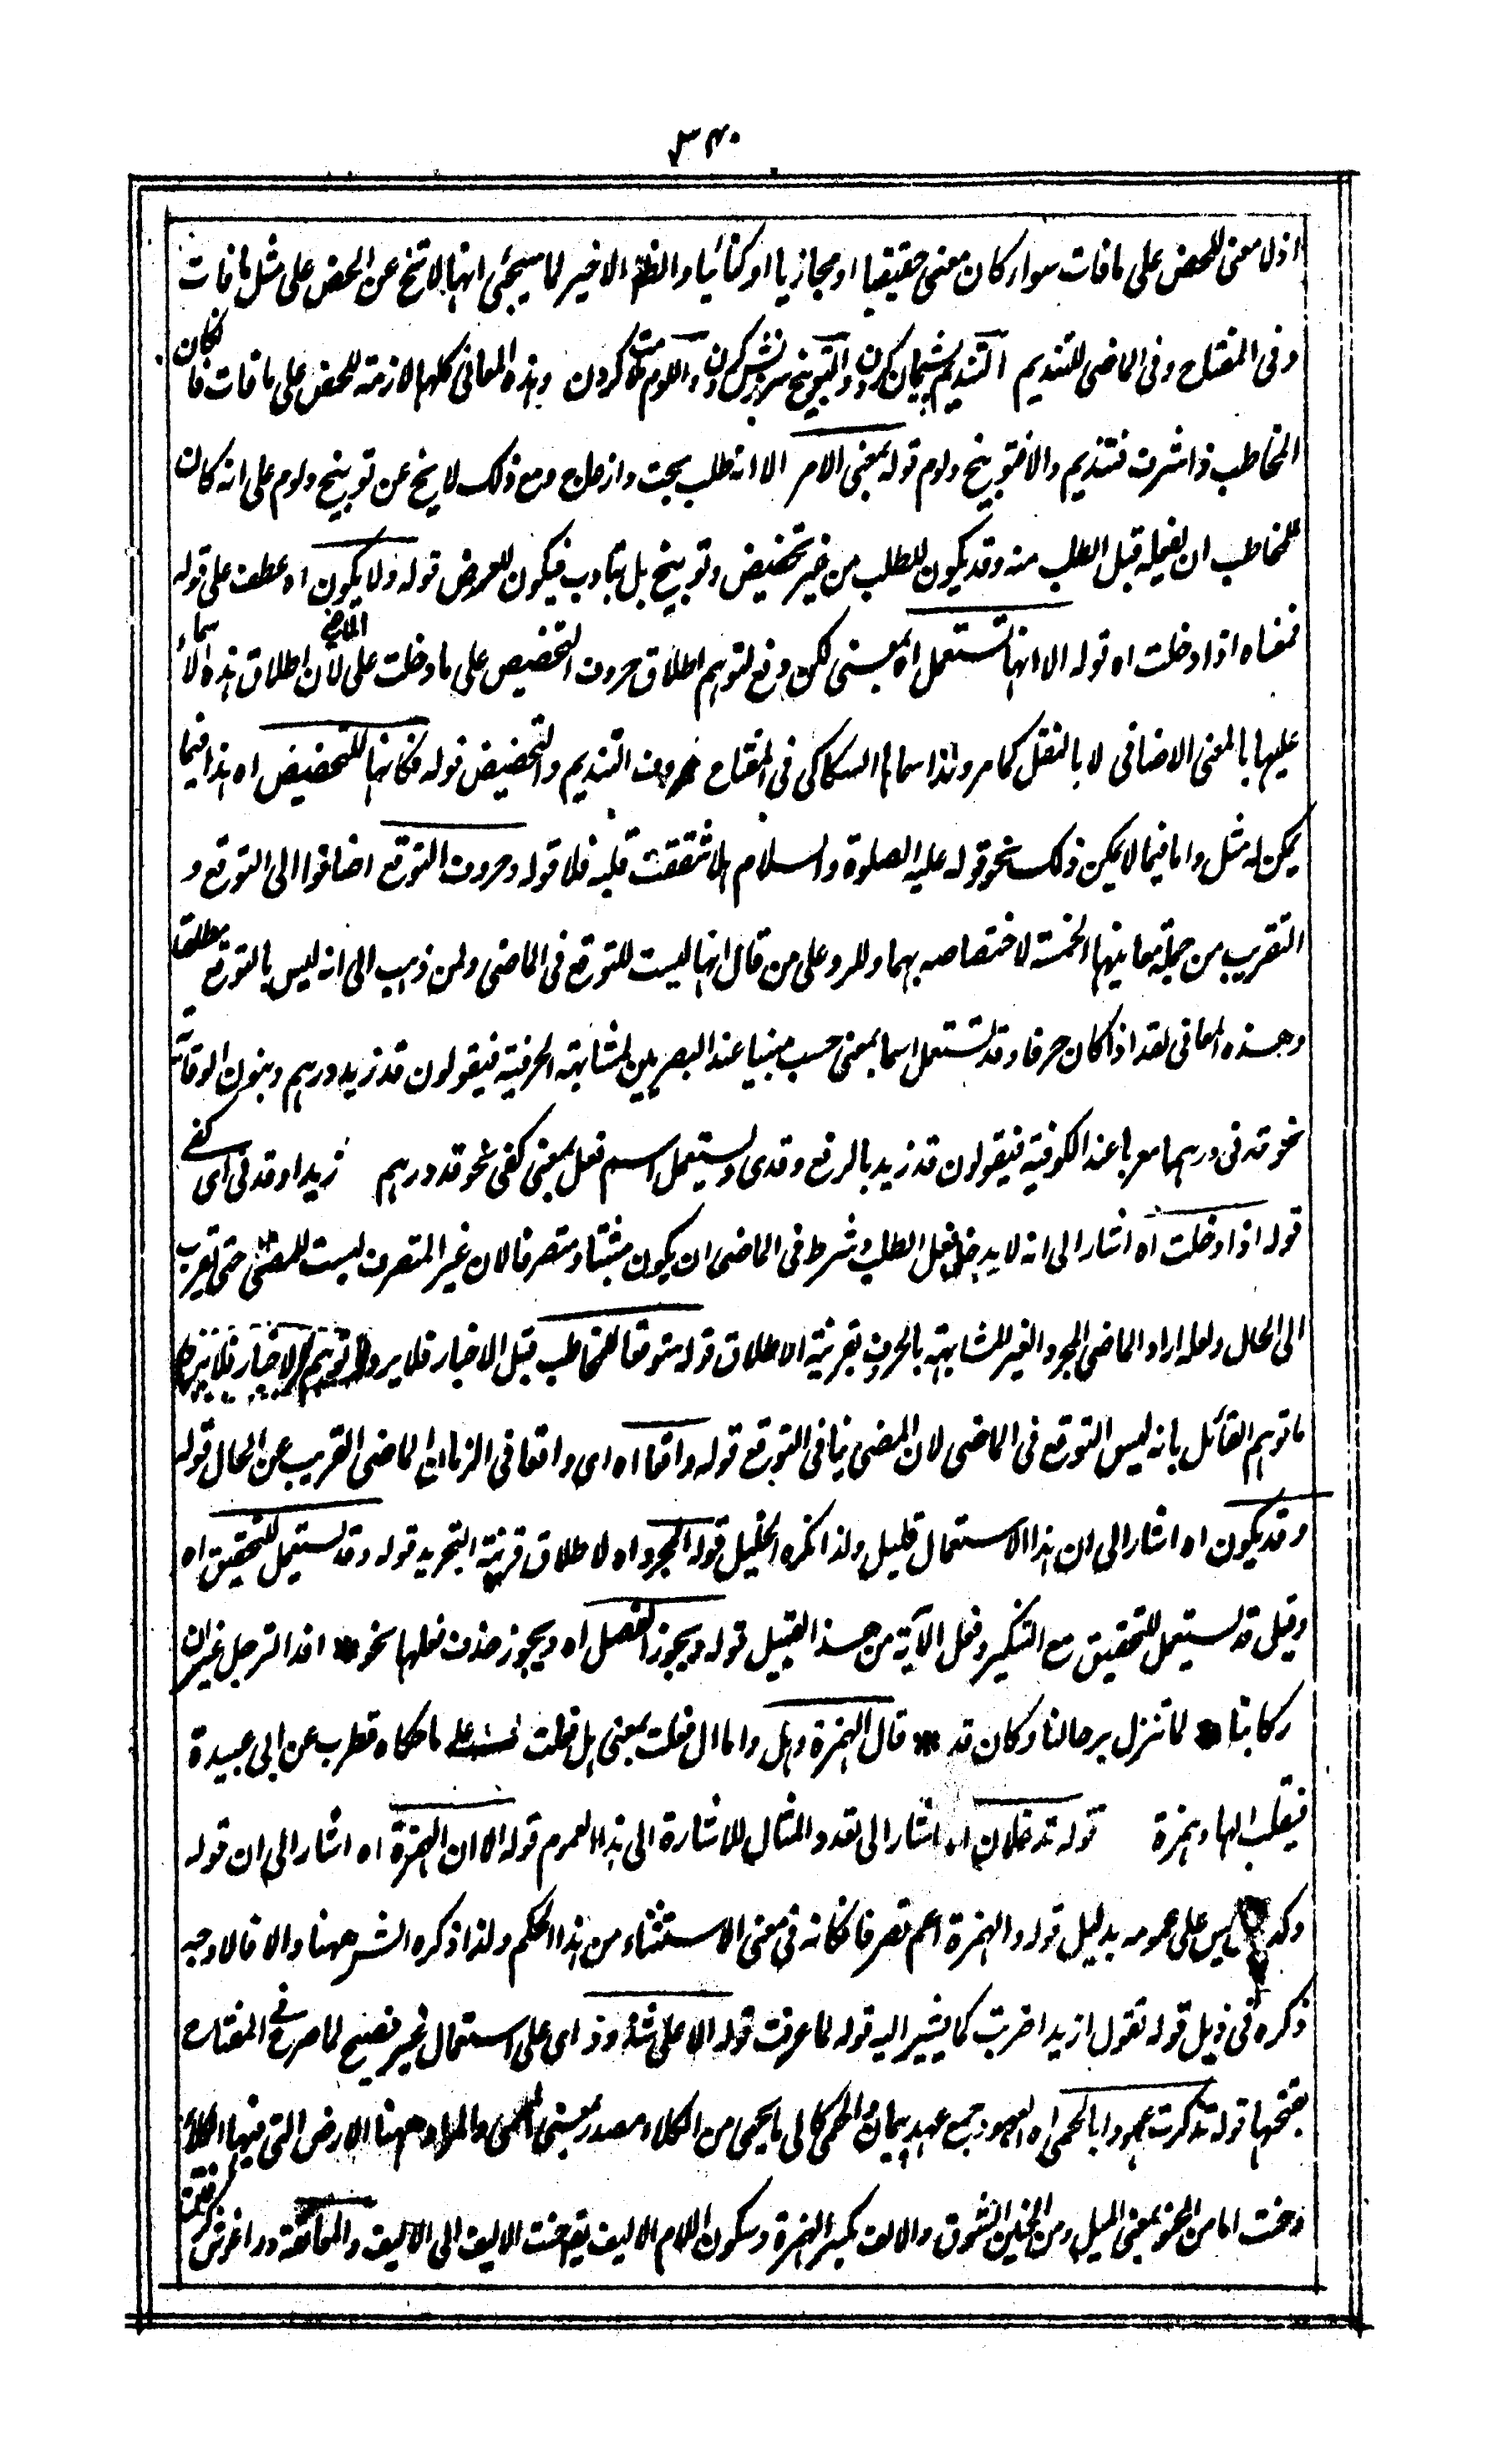 ٣٤٠
اذ لا معنى للحض على ما فات سواء كان معنى حقيقيا او مجازيا او كنائيا والظ الاخير لما سيجئ انها لا تخ عن الحض على مثل ما فات
وفى المفتاح وفى الماضى للتنديم التنديم پشيمان كردن والتوبيخ سرزنش كردن واللوم ملامت كردن وهذه المعانى كلها لازمة للحض على ما فات فان كان
المخاطب ذا شرف فتنديم والا فتوبيخ ولوم قوله بمعنى الامر الا انه طلب بحث وازعاج ومع ذلك لا يخ عن توبيخ ولوم على انه كان
للمخاطب ان يفعله قبل الطلب منه وقد يكون للطلب من غير تحضيض وتوبيخ بل بتادب فيكون للعرض قوله ولا يكون اه عطف على قوله
فمعناه اذا دخلت اه قوله الا انها تستعمل اه بمعنى لكن دفع لتوهم اطلاق حروف التحضيض على ما دخلت على الماضى لان اطلاق هذه الاسماء
عليها بالمعنى الاضافى لا بالنقل كما مر ولذا سماها السكاكى فى المفتاح حروف التنديم والتحضيض قوله فكانها للتحضيض اه هذا فيما
يمكن له مثل واما فيما لا يمكن ذلك نحو قوله عليه الصلوة والسلام هلا شققت قلبه فلا قوله وحروف التوقع اضافوا الى التوقع و
التقريب من جملة معانيها الخمسة لاختصاصه بهما وللرد على من قال انها ليست للتوقع فى الماضى ولمن ذهب الى انه ليس بالتوقع مطلقا
وهذه المعانى لقد اذا كان حرفا وقد تستعمل اسما بمعنى حسب مبنيا عند البصريين لمشابهته الحرفية فيقولون قد زيد درهم وبنون الوقاية
نحو قدنى درهما معربا عند الكوفية فيقولون قد زيد بالرفع وقدى ويستعمل اسم فعل بمعنى كفى نحو قد درهم زيدا وقدنى اى كفى
قوله اذا دخلت اه اشار الى انه لا يدخل فعل الطلب وشرط فى الماضى ان يكون مثبتا ومتصرفا لان غير المتصرف ليست للمضى حتى تقرب
الى الحال ولعله اراد الماضى المجرد الغير للمشابهة بالحروف بقرينة الاطلاق قوله متوقعا للمخاطب قبل الاخبار فلا يرد
ما توهم القائل بانه ليس التوقع فى الماضى لان المضى ينافى التوقع قوله واقعا اه اى واقعا فى الزمان الماضى القريب عن الحال قوله
وقد يكون اه اشار الى ان هذا الاستعمال قليل ولذا انكره الخليل قوله المجرد اه لاطلاق قرينة التجريد قوله وقد تستعمل للتحقيق اه
وقيل قد تستعمل للتحقيق مع التكثير وفعل الآية من هذا القبيل قوله ويجوز الفصل اه ويجوز حذف فعلها نحو افد الترحل غير ان
ركابنا لما تزل برحالنا وكان قد قال الهمزة وهل واما ال فعلت بمعنى هل فعلت على ما حكاه قطرب عن ابى عبيدة
فيقلب الهاء همزة قوله تدخلان اه اشار الى تعدد المثال للاشارة الى هذا العموم قوله الا ان الهمزة اه اشار الى ان قوله
ليس على عمومه بدليل قوله والهمزة اعم تصرفا فكانه فى معنى الاستثناء من هذا الحكم ولذا ذكره الشر ههنا والا فالاوجه
ذكره فى ذيل قوله تقول ازيدا ضربت كما يشير اليه قوله لما عرفت قوله الا على شذوذ اى على استعمال غير فصيح لما صرح فى المفتاح
بقبحها قوله تذكرت عهودا بالحمى اه العهود جمع عهد پيمان والحمى كالى ما يحمى من الكلاء مصدر بمعنى المحمى والمراد ههنا الارض التى فيها الكلاء
وحنت اما من الحنو بمعنى الميل ومن الحنين الشوق والالف بكسر الهمزة وسكون اللام الاليف يقع حنت الاليف الى الاليف والمعانقة در اغوش گرفتن